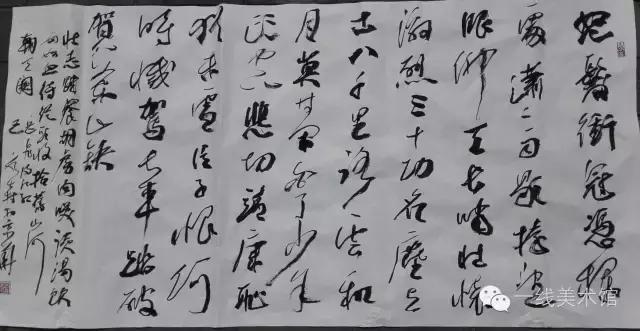 怒髮衝冠憑欄
處瀟瀟雨歇擡望
眼仰天長嘯壯懷
激烈三十功名塵与
土八千里路雲和
月莫等閑白了少年
頭空悲切靖康恥
猶未雪臣子恨何
時滅駕長車踏破
賀蘭山缺
壯志飢餐胡虜肉笑談渴飲
匈奴血待從頭收拾舊山河
朝天闕 岳飛滿江紅
一线美术馆